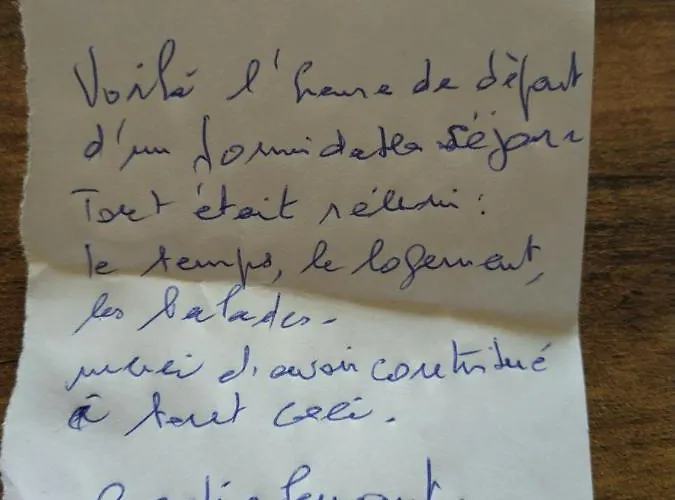 Voilà l'heure de départ
d'un formidable séjour
Tout était réuni :
le temps, le logement,
les balades.
merci d'avoir contribué
à tout ceci.
Cordialement